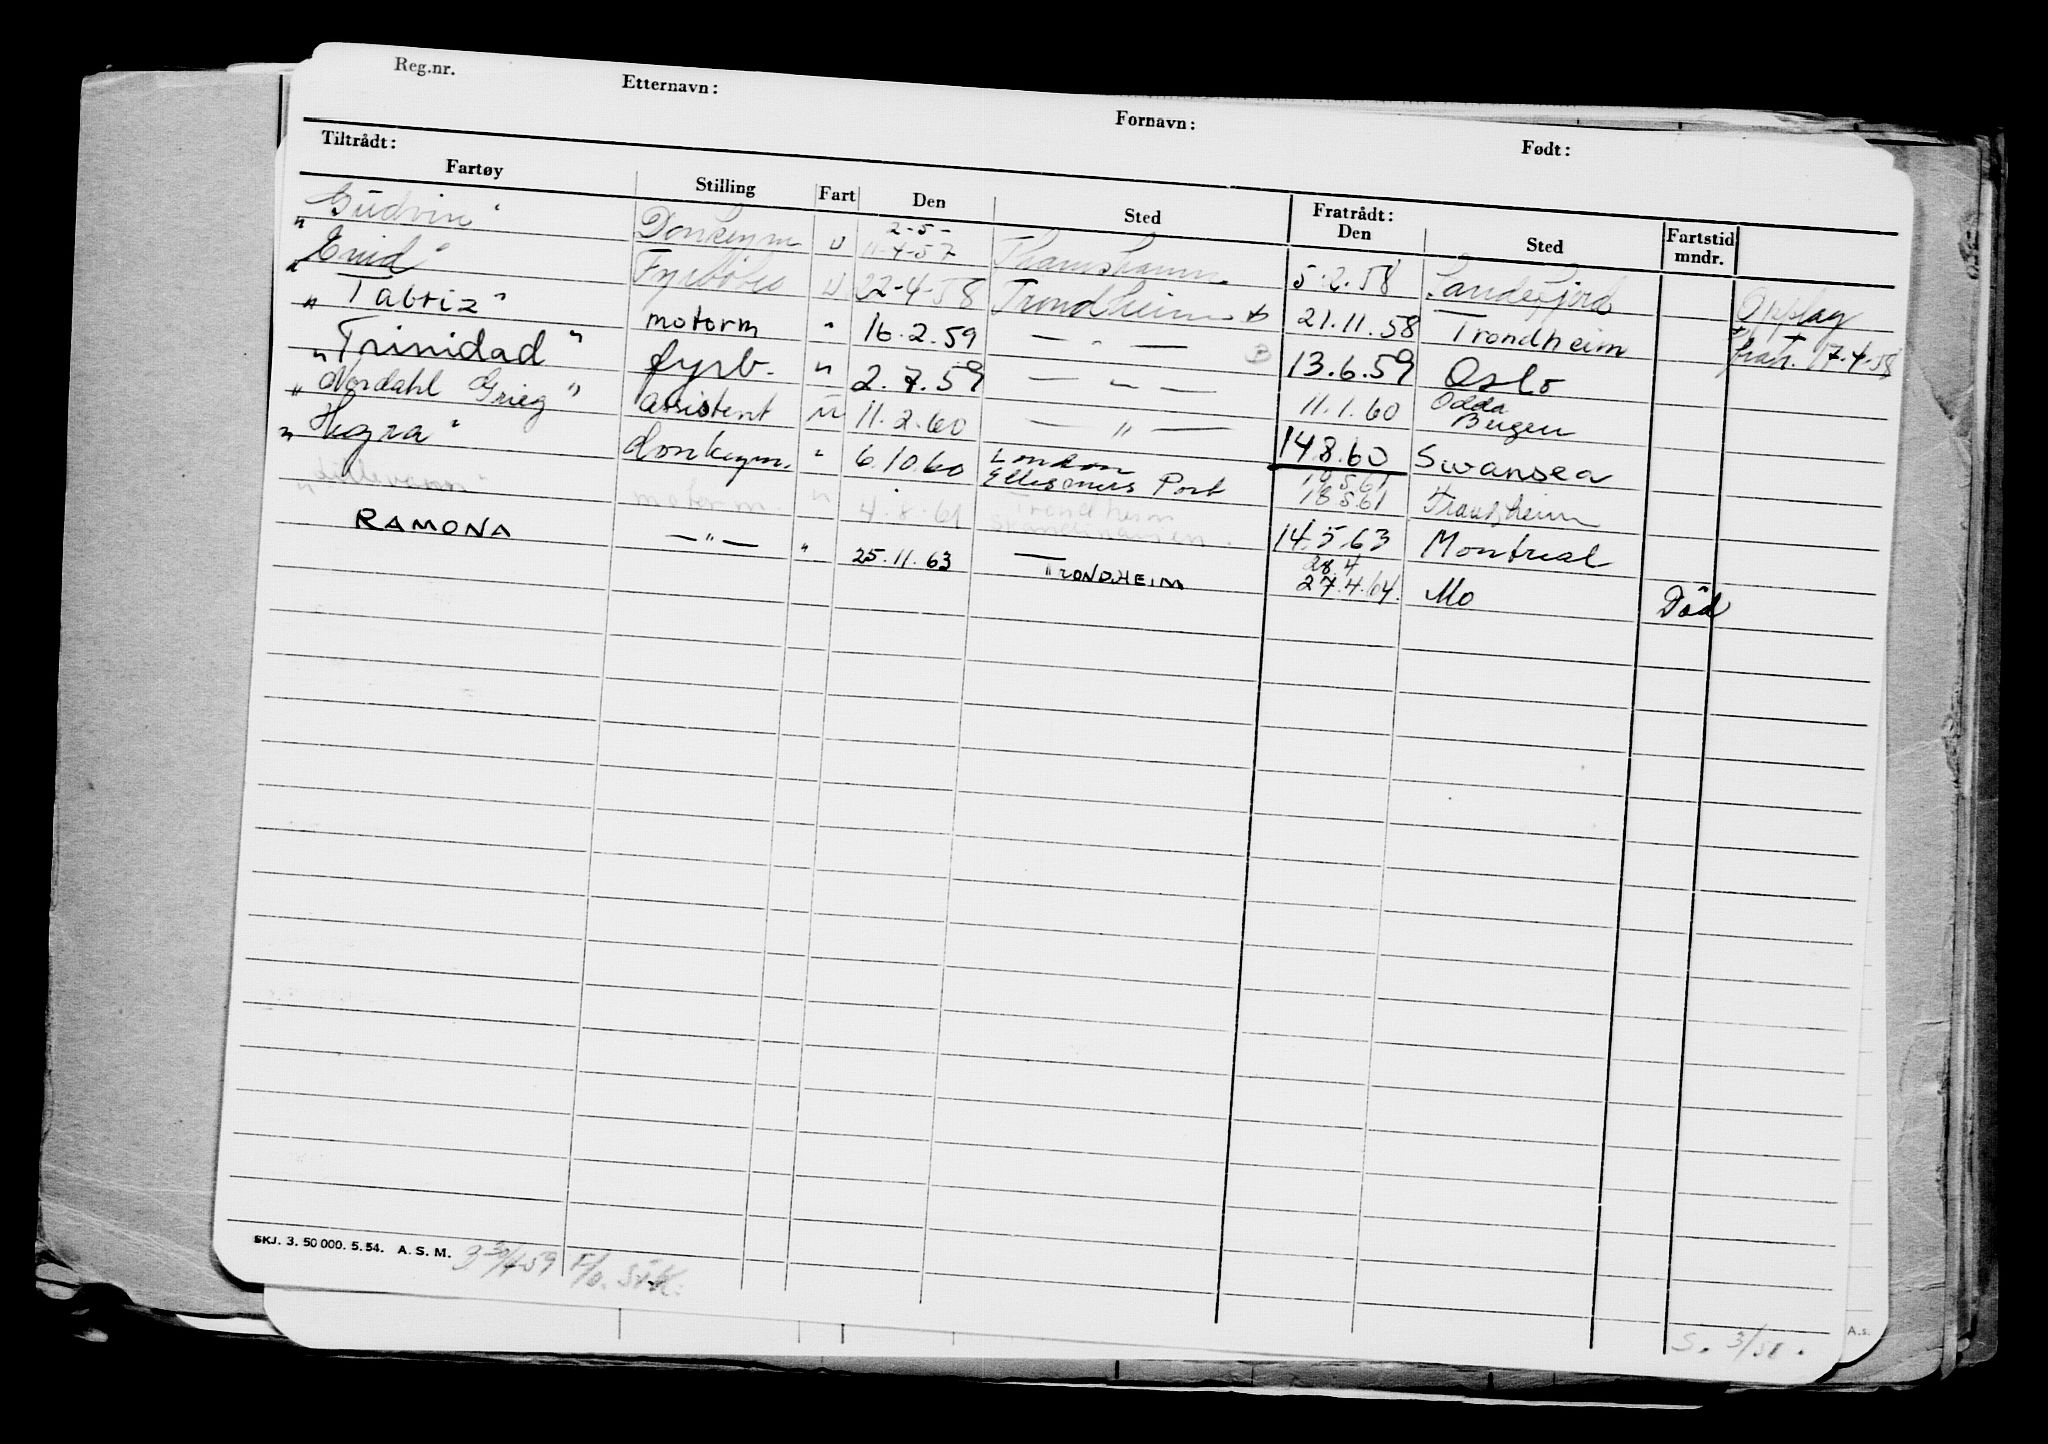 Reg.nr. Etternavn: Fornavn: Født:
Tiltrådt: Fratrådt:
Fartøy Stilling Fart Den Sted Den Sted Fartstid mndr.
"Gudvin" Donkeym U 2-5- 11-4-57 Thamshamn 5.2.58 Sandefjord Opplag
"Enid" Fyrbøter U 22-4-58 Trondheim 21.11.58 Trondheim 17-4-58
"Tabriz" motorm " 16.2.59 — " — 13.6.59 Oslo
"Trinidad" fyrb. " 2.7.59 — " — 11.1.60 Odda Bergen
"Nordahl Grieg" assistent " 11.2.60 — " — 14.8.60 Swansea
"Hegra" donkeym. " 6.10.60 London Ellesmers Port 18.5.61 Trondheim
motorm. " 4.8.61 Trondheim 14.5.63 Montreal
RAMONA — " — " 25.11.63 TRONDHEIM 28.4 27.4.64. Mo Död
SKJ. 3. 50 000. 5. 54. A. S. M.
S. 3/51.
A.s.